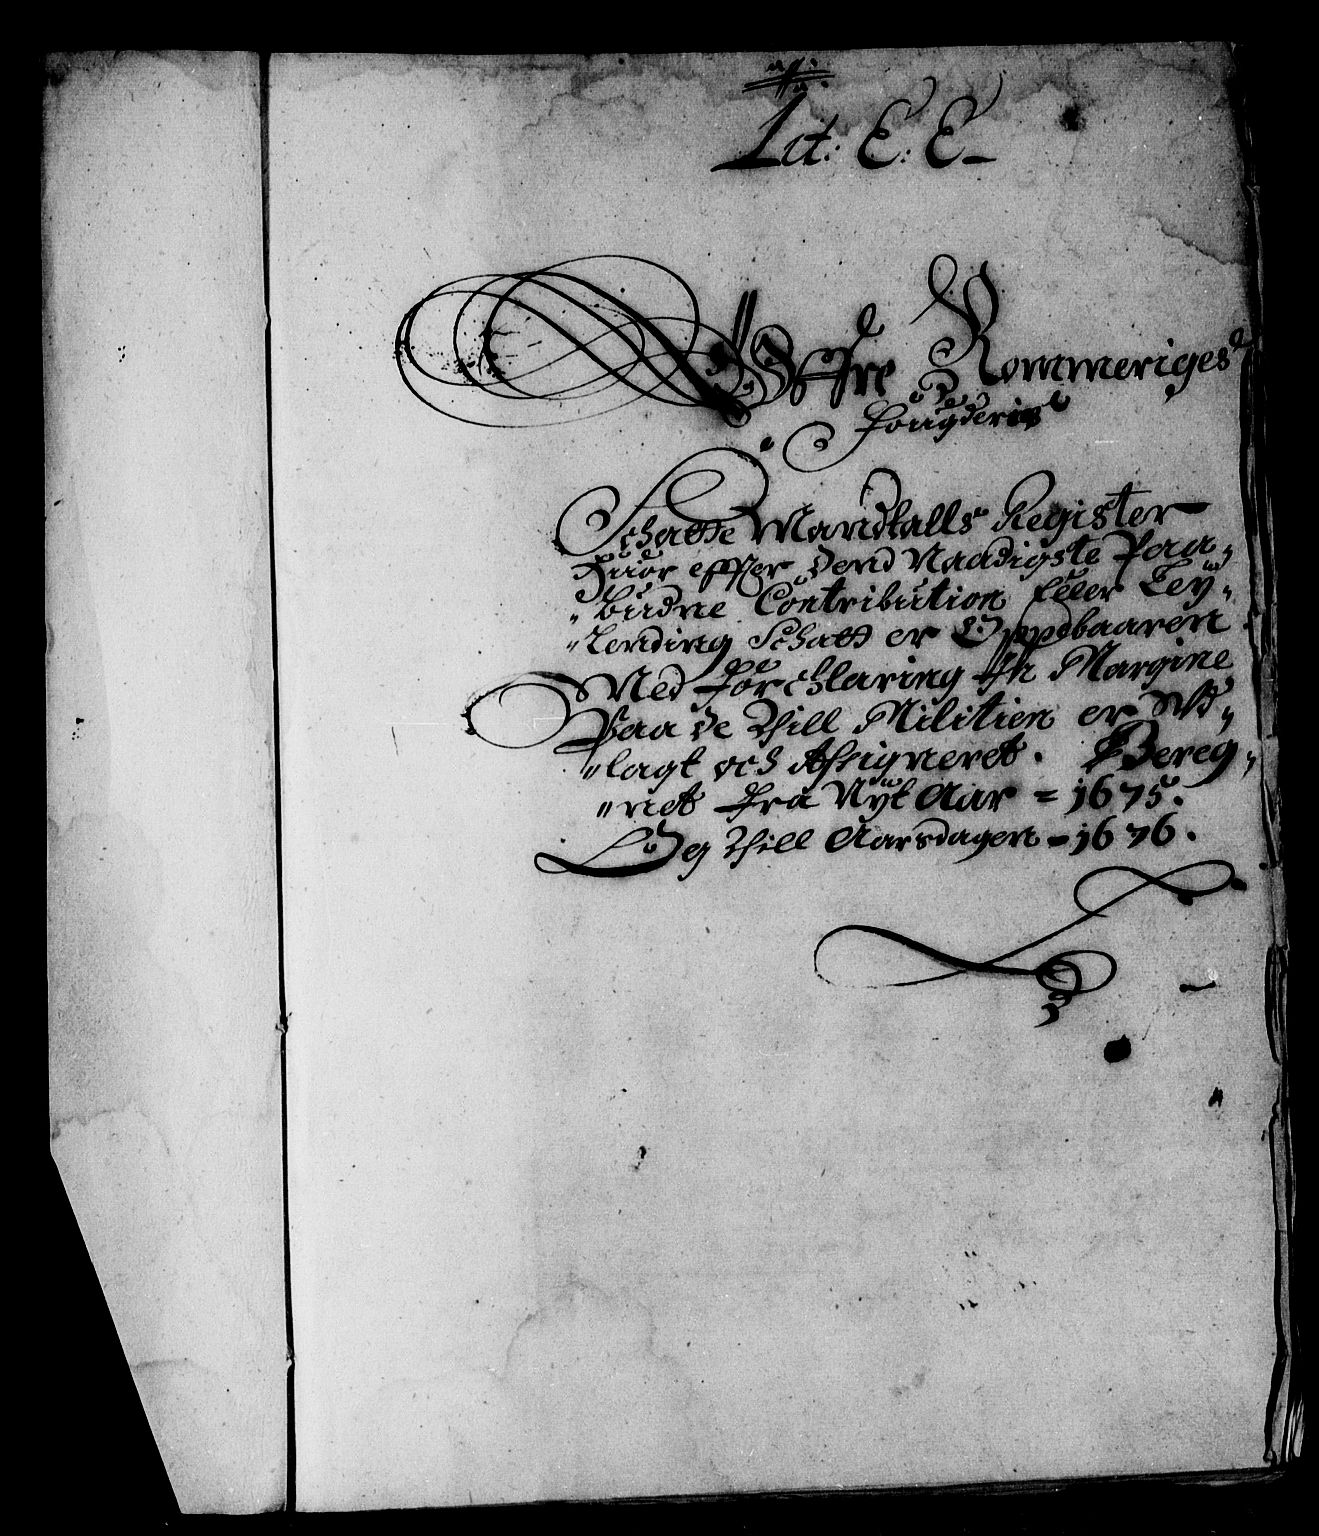 Lit: E: E
Øffre Rommeriges
Fougderies
Schatte Mandtalls Register
Huor effter dend Naadigste Paa-
budne Contribution Eller Ley-
lending Schatt er Oppebaaren
Med Forchlaring In Margine
Paa de Thill Militien er Vd-
lagt och Assigneret. Bereg-
net fra Nyt Aar = 1675.
Og Thill Aarsdagen = 1676.